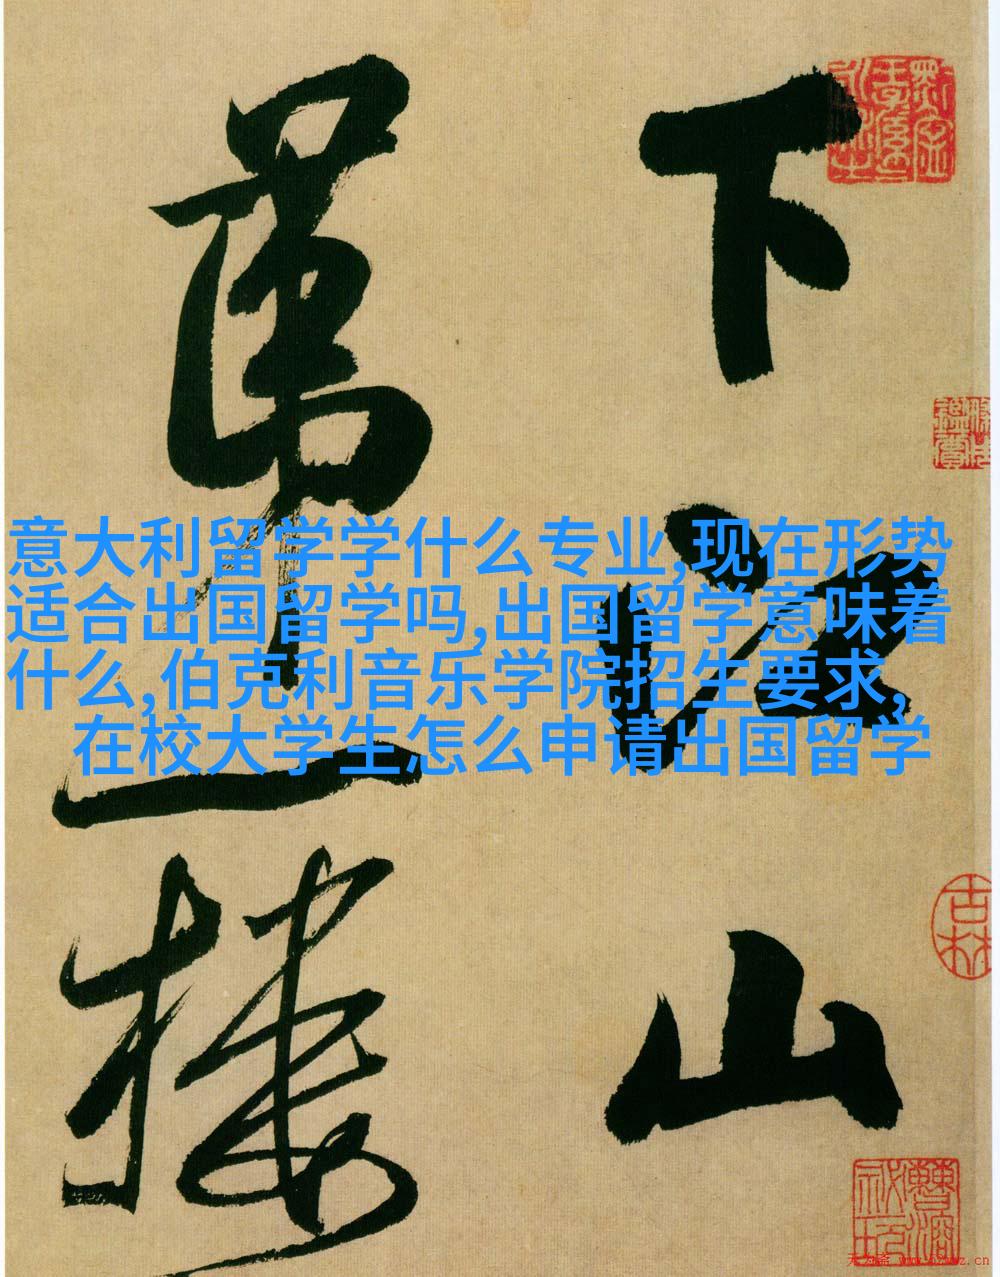 下江山
第一樓
意大利留学学什么专业,现在形势
适合出国留学吗,出国留学意味着
什么,伯克利音乐学院招生要求,
在校大学生怎么申请出国留学
吉林